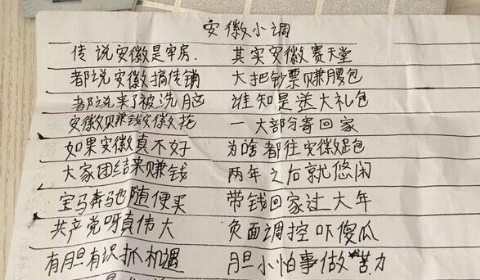 安徽小调
传说安徽是牢房. 其实安徽赛天堂
都说安徽搞传销 大把钞票赚腰包
都说来了被洗脑 谁知是送大礼包
安徽赚钱安徽花 一大部分寄回家
如果安徽真不好 为啥都往安徽跑
大家团结来赚钱 两年之后就悠闲
宝马奔驰随便买 带钱回家过大年
共产党呀真伟大 负面调控吓傻瓜
有胆有识抓机遇 胆小怕事做苦力